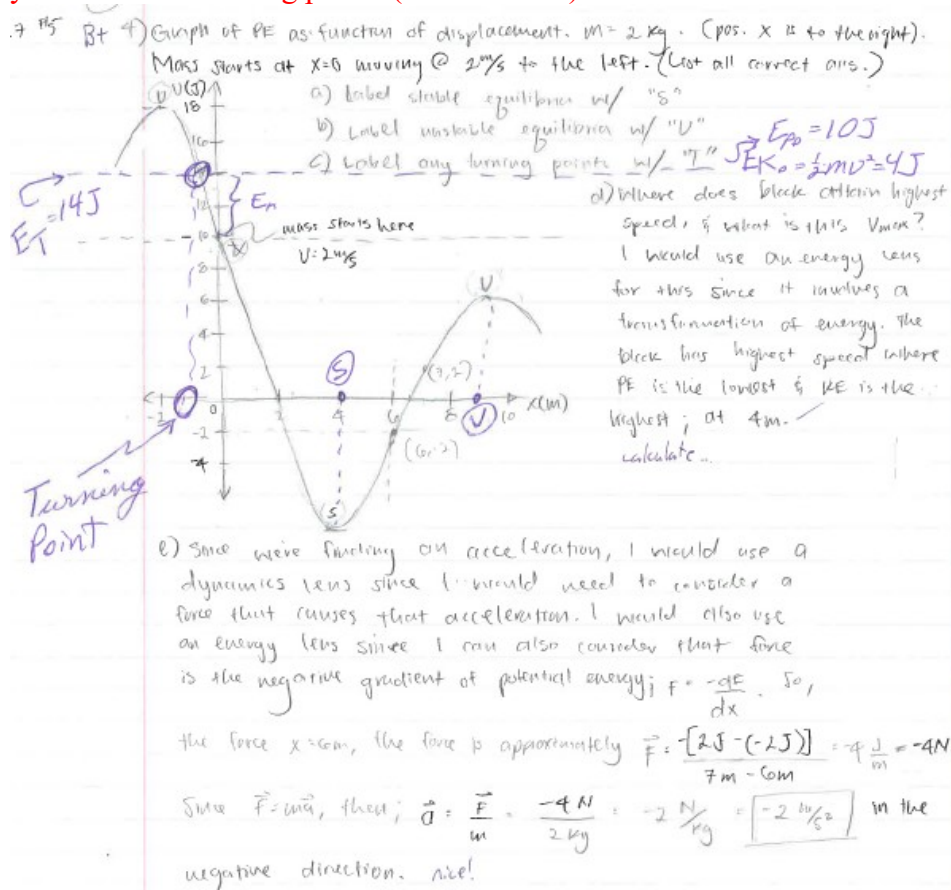 B+ 4) Graph of PE as function of displacement. m = 2 kg. (pos. x is to the right).
Mass starts at x=0 moving @ 2m/s to the left. (List all correct ans.)
a) Label stable equilibria w/ "S"
b) Label unstable equilibria w/ "U"
c) Label any turning points w/ "T"
Epo = 10J
EKo = ½mv² = 4J
U U(J)
18
16
ET = 14J
12
10
8
6
4
2
0
-2
-4
Em
mass starts here
V = 2m/s
d) Where does block attain highest
speed, & what is this Vmax?
I would use an energy lens
for this since it involves a
transformation of energy. The
block has highest speed where
PE is the lowest & KE is the
highest; at 4m.
calculate..
U
S
(7,2)
2 4 6 8 10 x(m)
U
(6,-2)
S
Turning
Point
e) Since we're finding an acceleration, I would use a
dynamics lens since I would need to consider a
force that causes that acceleration. I would also use
an energy lens since I can also consider that force
is the negative gradient of potential energy; F = -dE/dx. So,
the force x=6m, the force is approximately F = -[2J-(-2J)] / 7m-6m = -4 J/m = -4N
Since F=ma, then; a = F/m = -4 N / 2 kg = -2 N/kg = -2 m/s² in the
negative direction. nice!